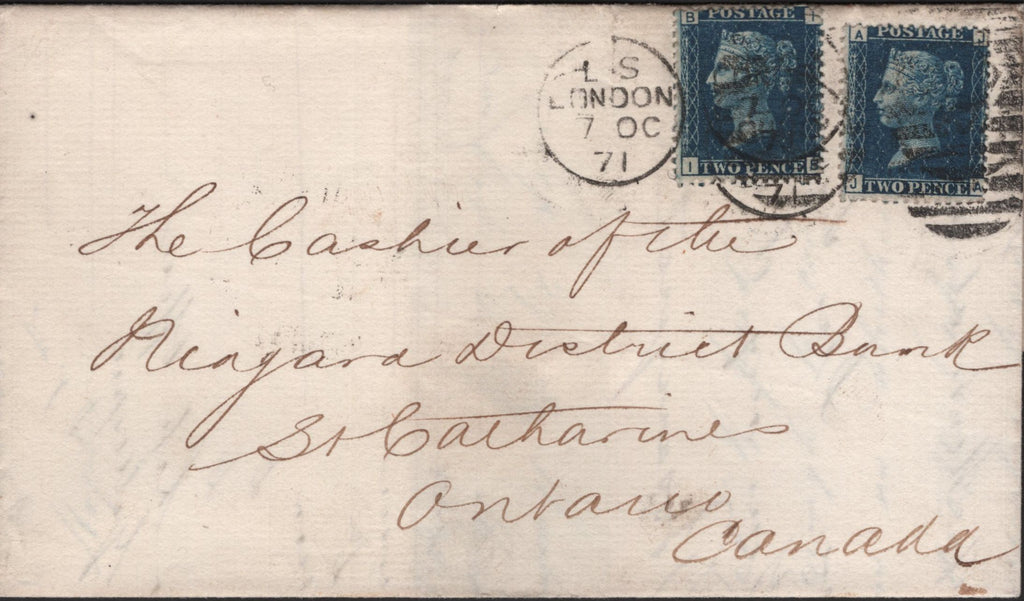 B POSTAGE
I TWO PENCE E
A POSTAGE J
J TWO PENCE A
L S
LONDON
7 OC
71
71
The Cashier of the
Niagara District Bank
St Catharines
Ontario
Canada